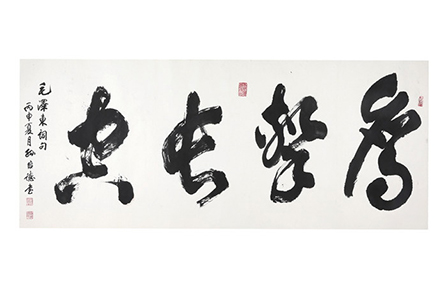 鷹擊長空
毛澤東詞句
丙申夏月